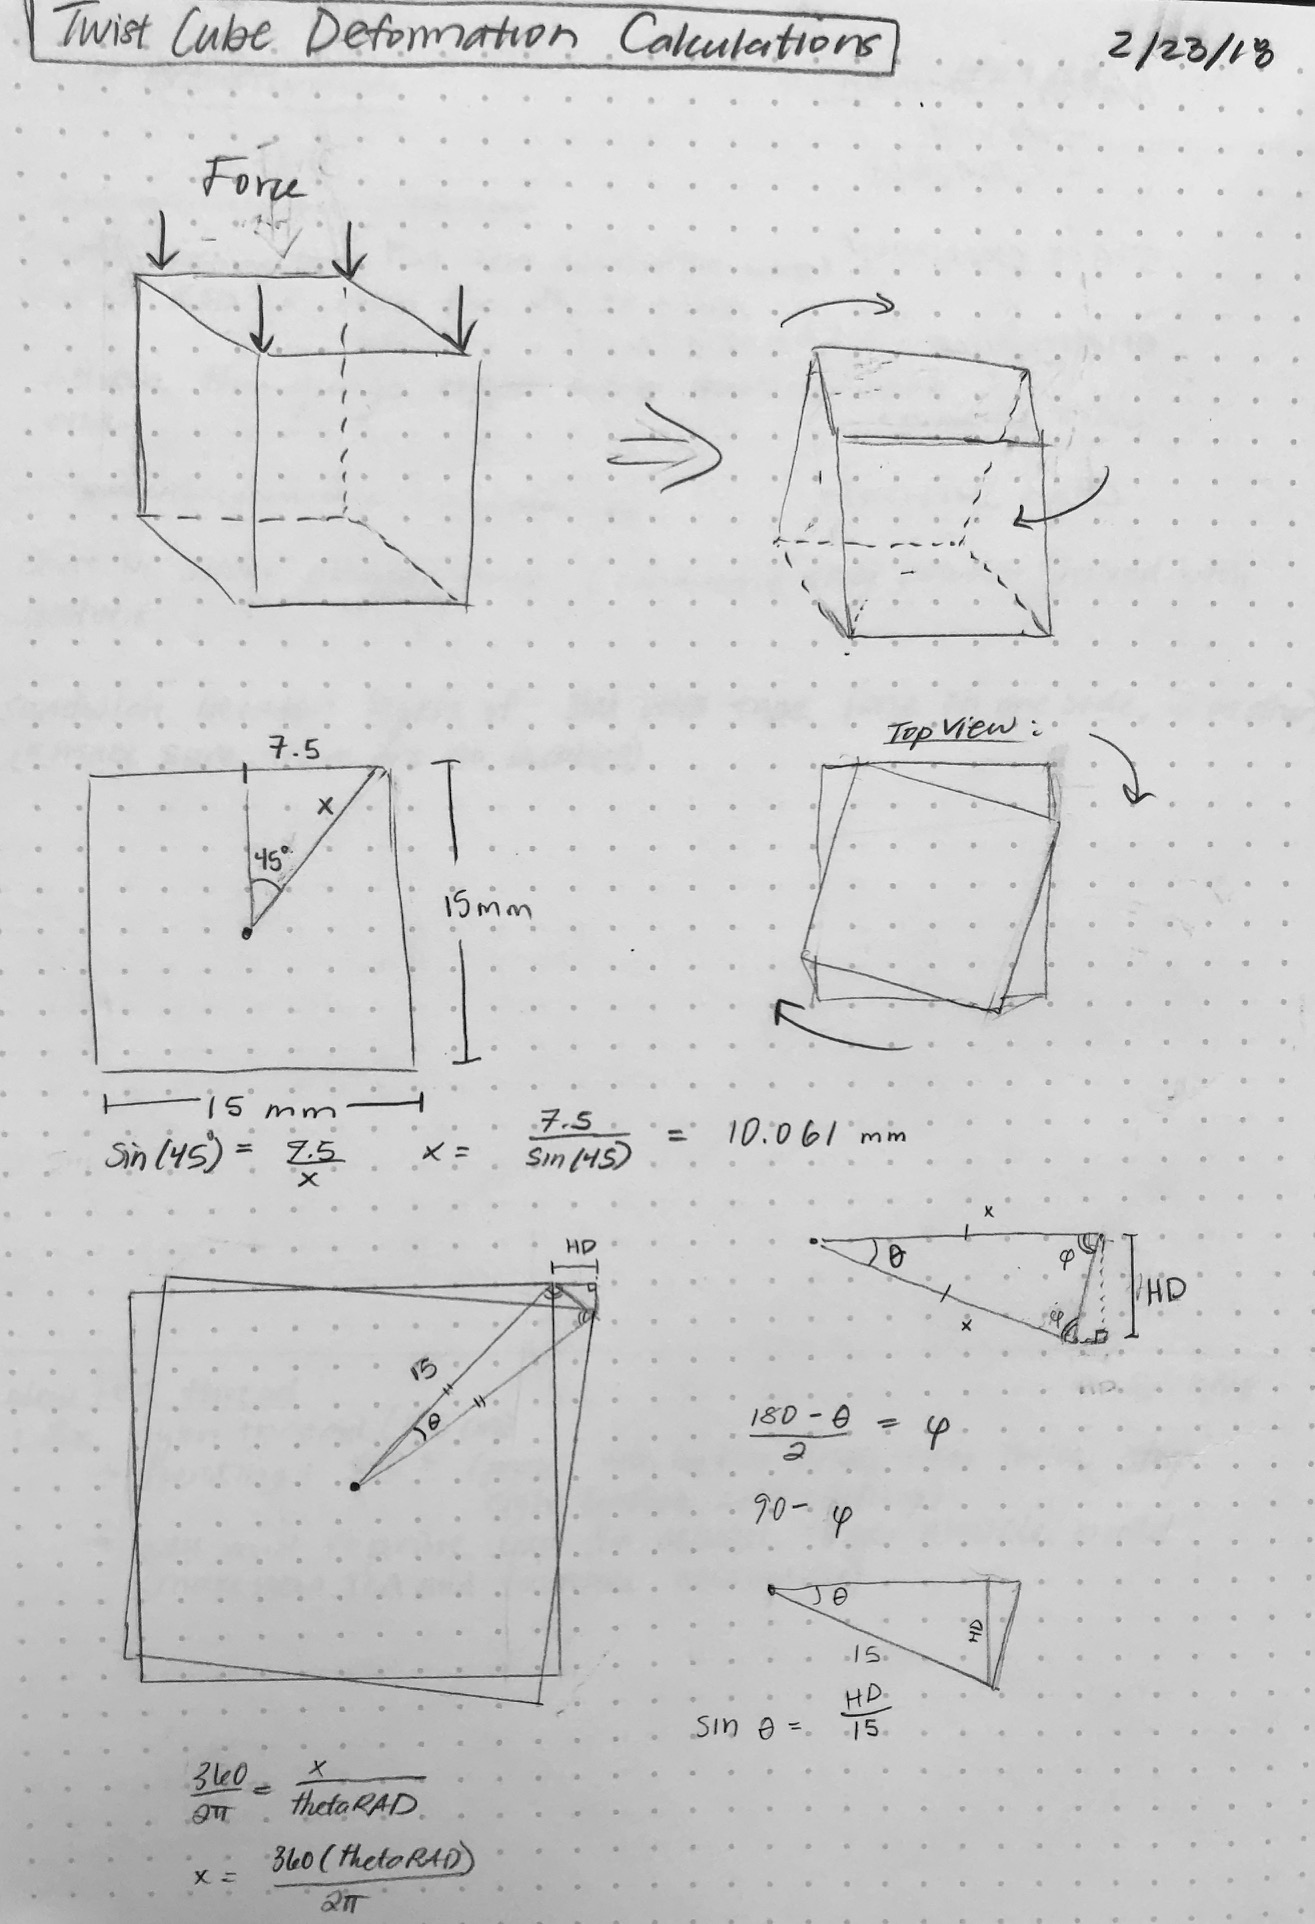 Twist Cube Deformation Calculations
2/23/18
Force
Top View:
7.5
x
45°
15mm
15 mm
sin(45°) = 7.5/x x = 7.5/sin(45) = 10.061 mm
HD
15
θ
x
θ
φ
HD
φ
x
(180-θ)/2 = φ
90-φ
θ
HD
15
sin θ = HD/15
360/2π = x/thetaRAD
x = 360(thetaRAD)/2π